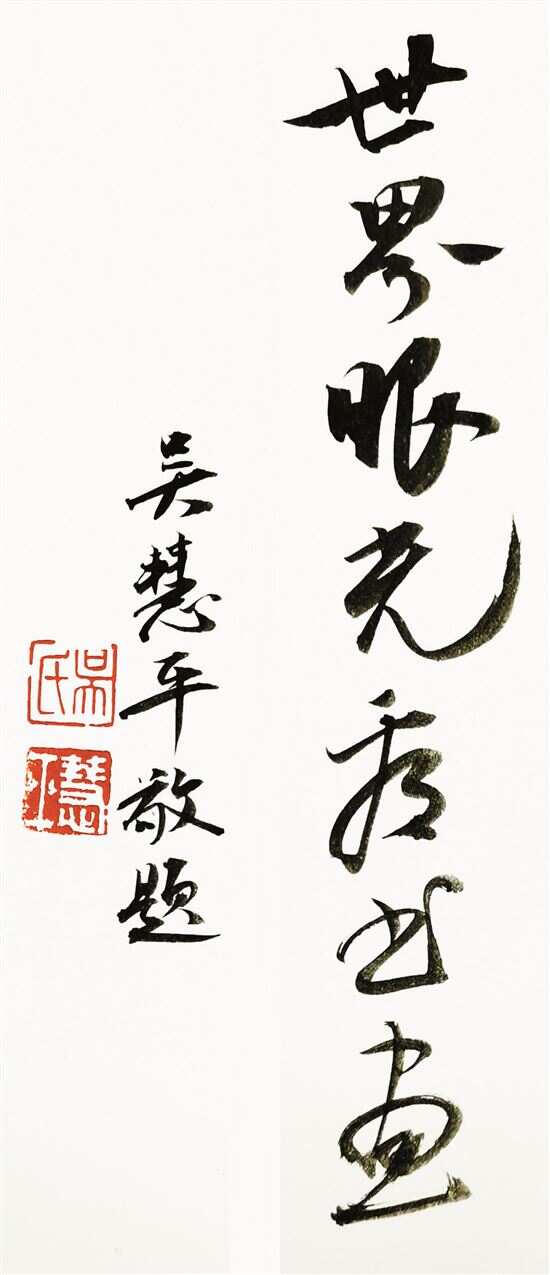 世界眼光看书画
吴慧平敬题
吴氏